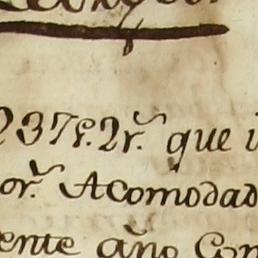 237s.2r.s que
or.s Acomodad
ente año Con